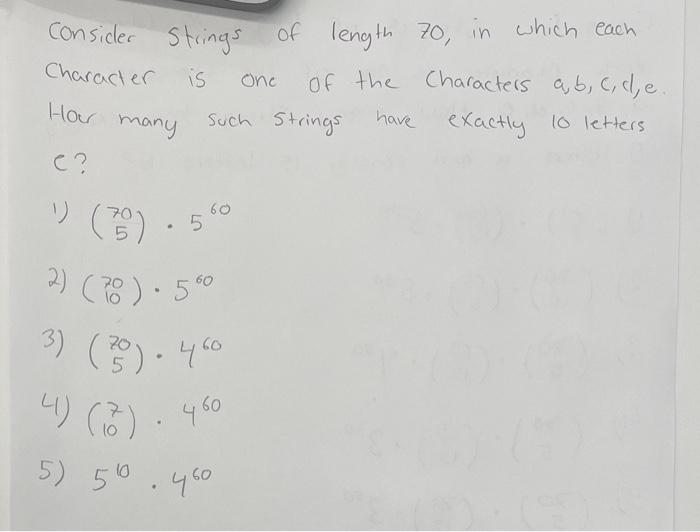 Consider Strings of length 70, in which each
Character is one of the Characters a, b, c, d, e.
How many such Strings have exactly 10 letters
c?
1) (70 5) · 5^60
2) (70 10) · 5^60
3) (70 5) · 4^60
4) (7 10) · 4^60
5) 5^10 · 4^60